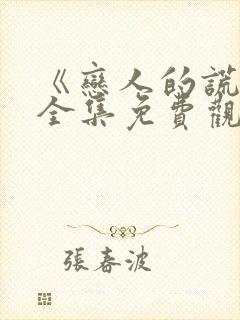 《戀人的謊
全集免費觀
張春波